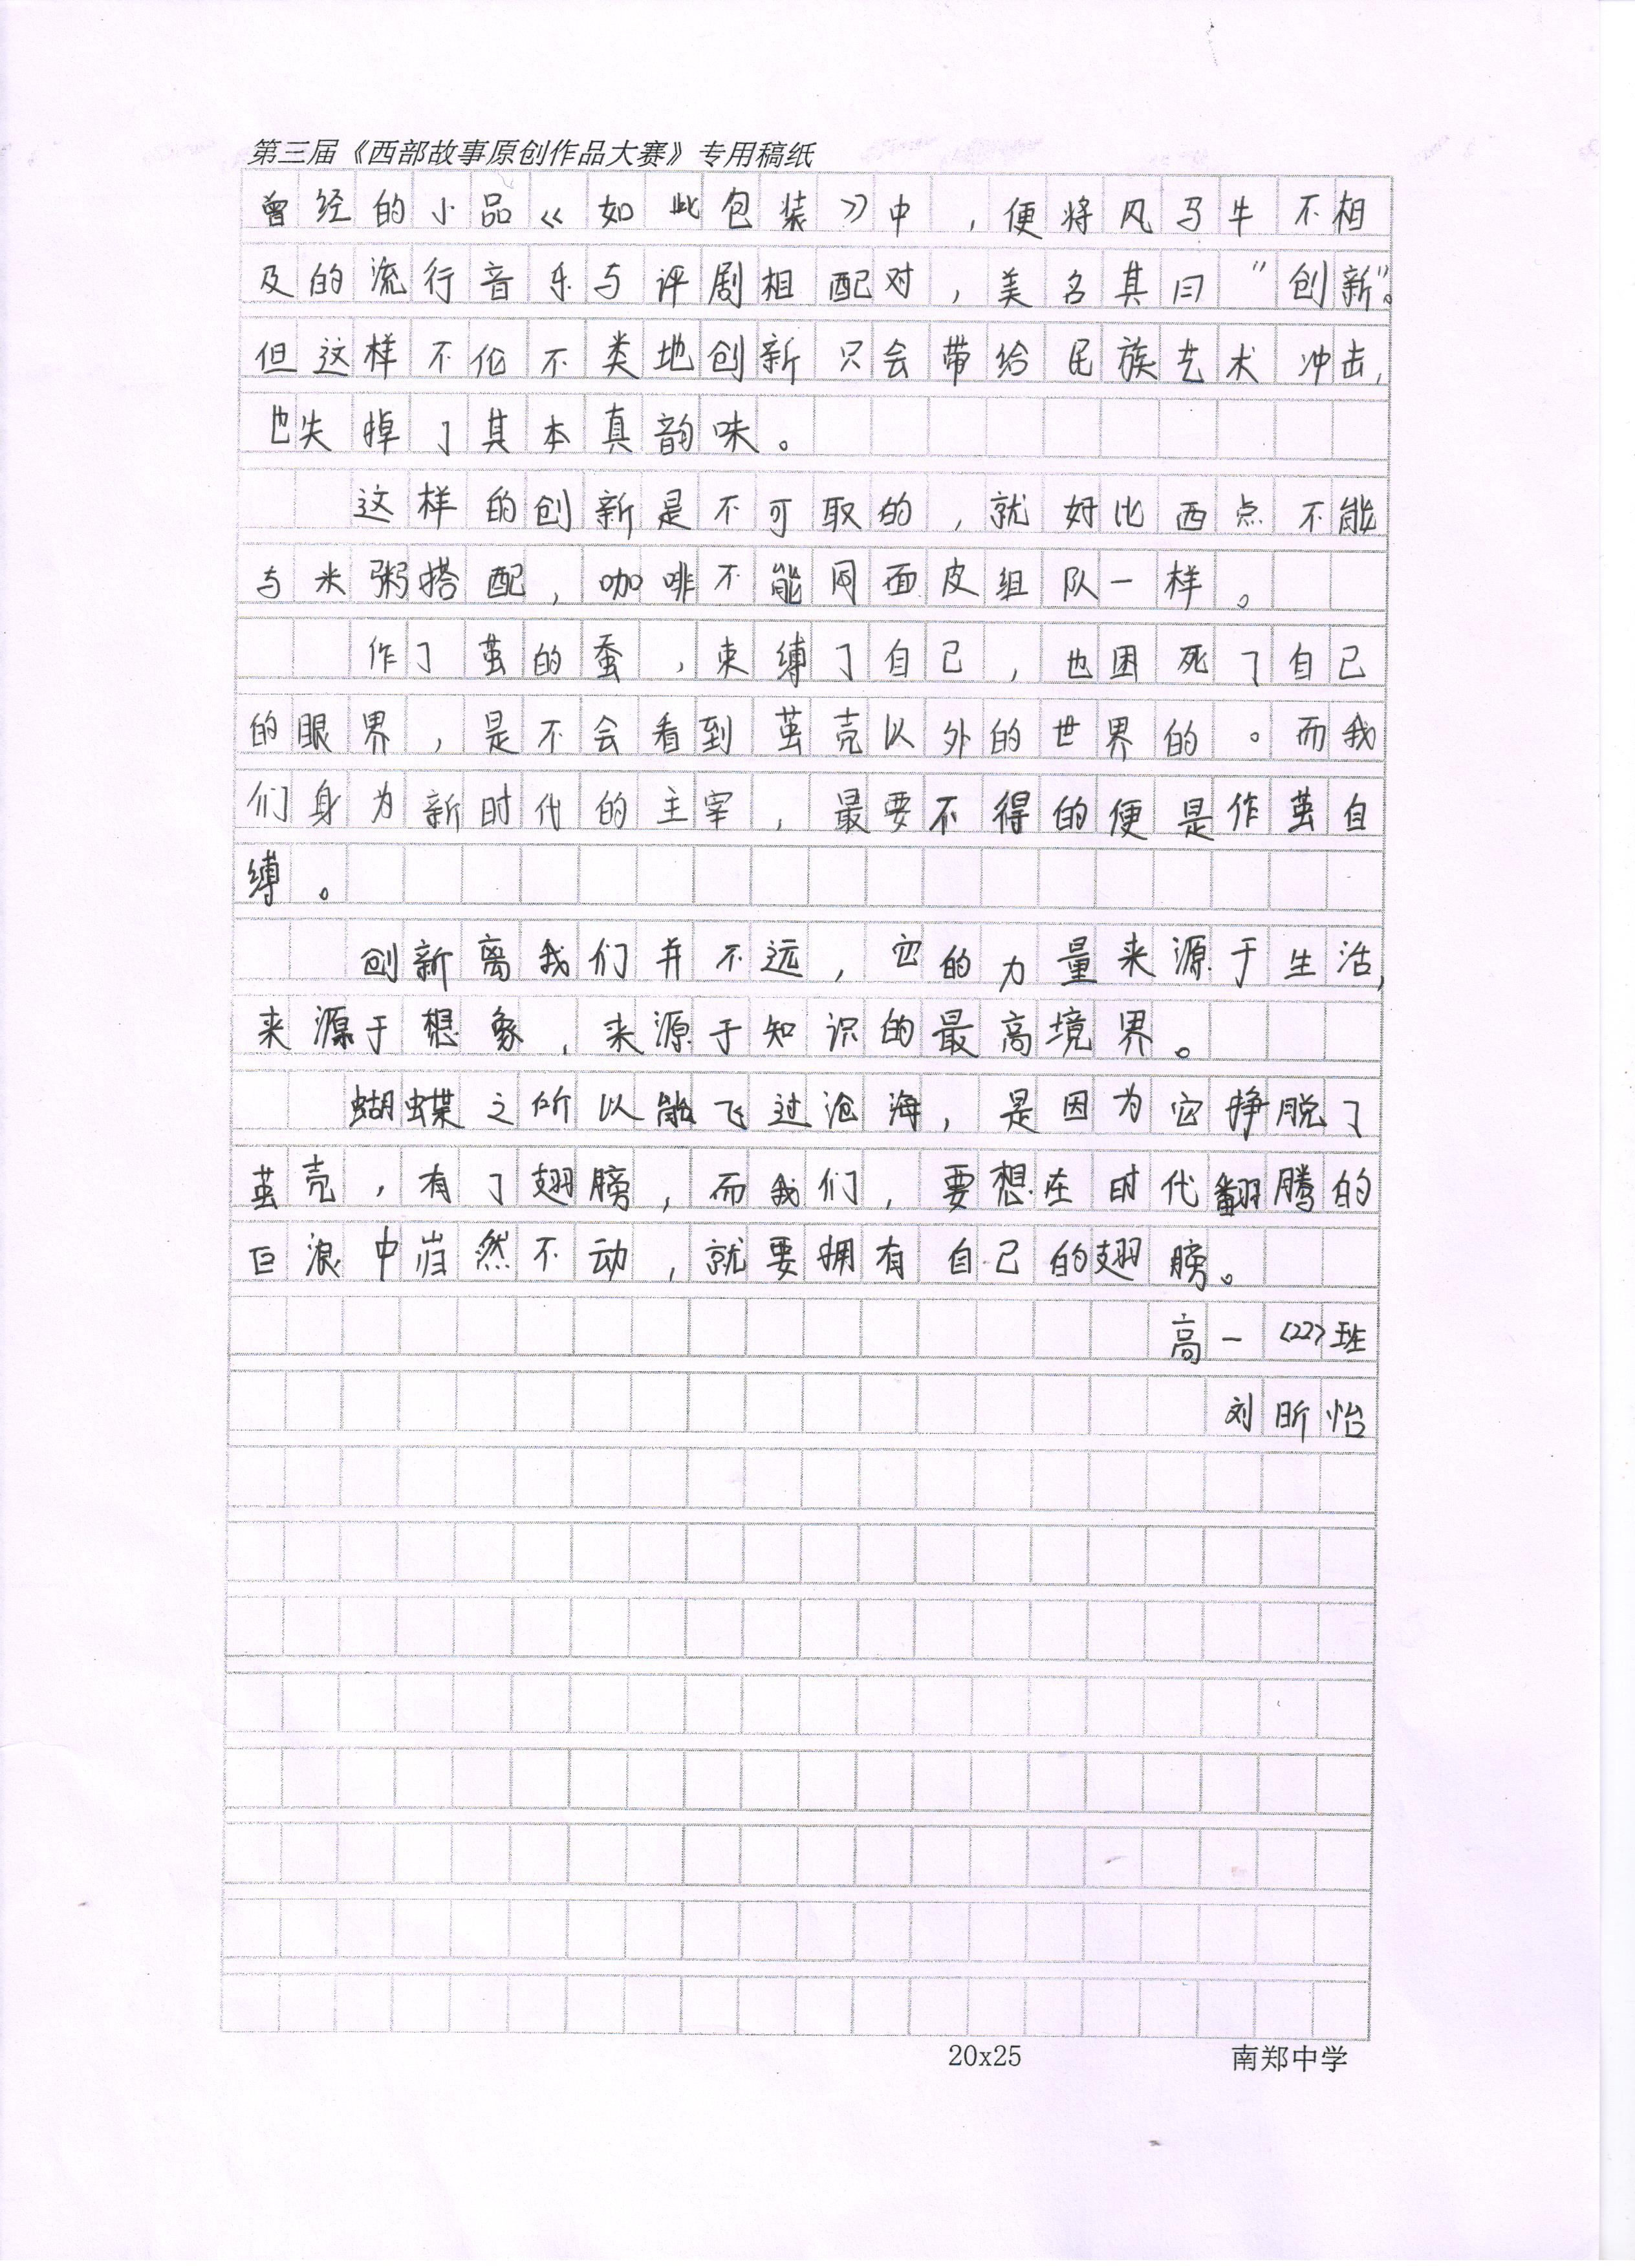 第三届《西部故事原创作品大赛》专用稿纸
曾经的小品《如此包装》中，便将风马牛不相
及的流行音乐与评剧相配对，美名其曰“创新”。
但这样不伦不类地创新只会带给民族艺术冲击，
也失掉了其本真韵味。
这样的创新是不可取的，就好比西点不能
与米粥搭配，咖啡不能同面皮组队一样。
作了茧的蚕，束缚了自己，也困死了自己
的眼界，是不会看到茧壳以外的世界的。而我
们身为新时代的主宰，最要不得的便是作茧自
缚。
创新离我们并不远，它的力量来源于生活，
来源于想象，来源于知识的最高境界。
蝴蝶之所以能飞过沧海，是因为它挣脱了
茧壳，有了翅膀，而我们，要想在时代翻腾的
巨浪中岿然不动，就要拥有自己的翅膀。
高一<22>班
刘昕怡
20x25 南郑中学